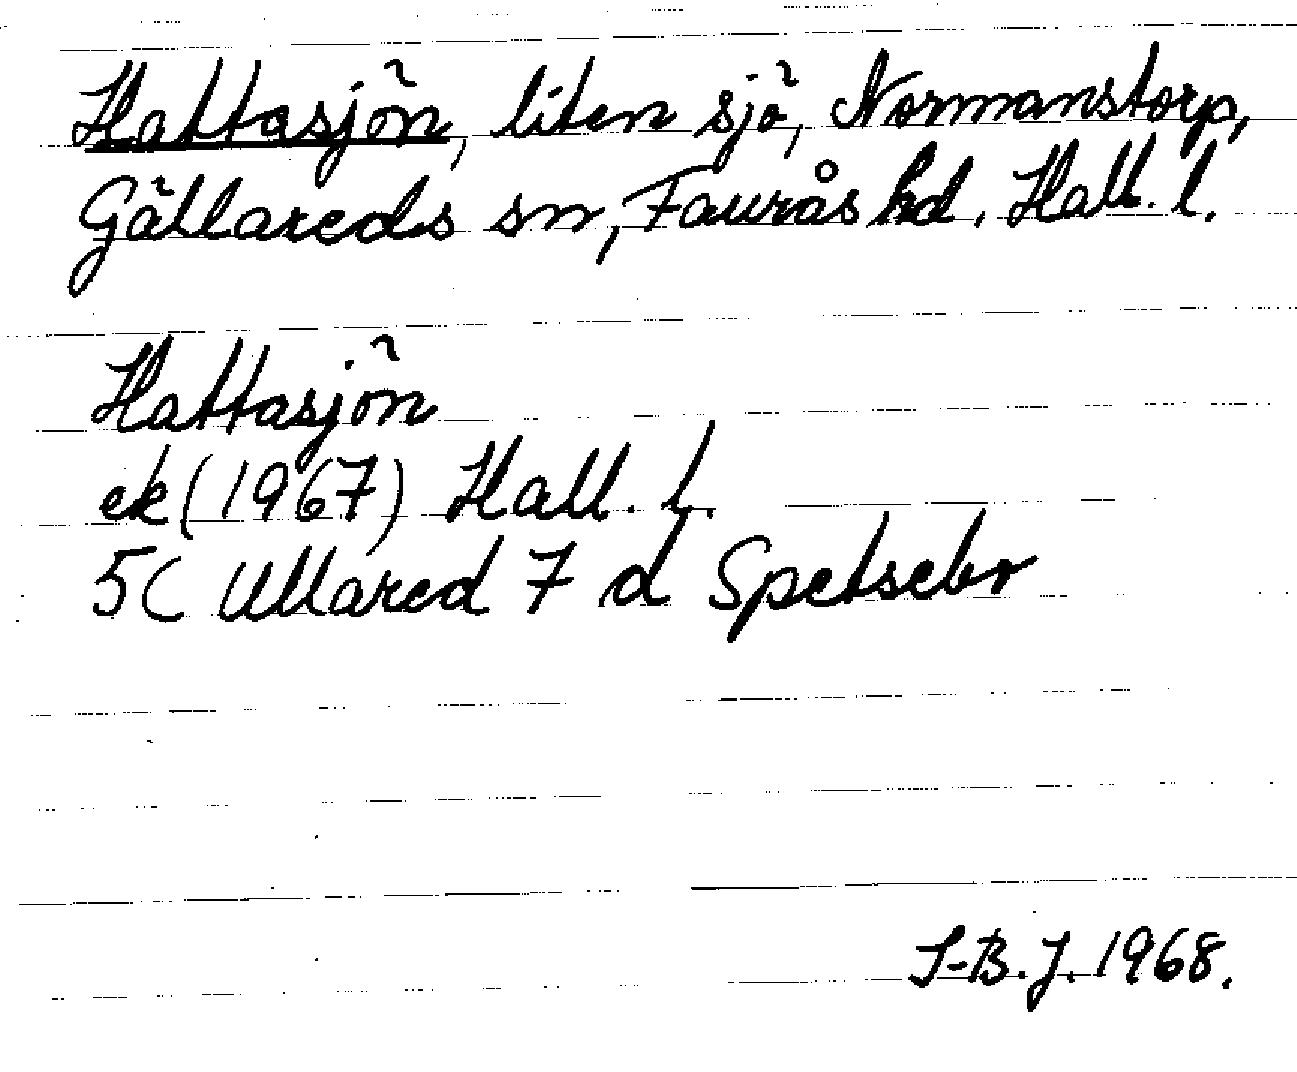 Hattasjön, liten sjö, Normanstorp,
Gällareds sn, Faurås hd. Hall. l.
Hattasjön
ek (1967) Hall. l.
5C Ullared 7 d Spetsebo
I-B.J. 1968.